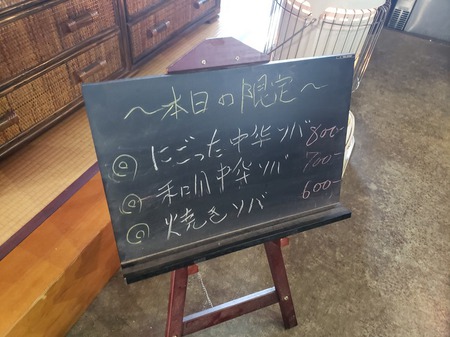 〜本日の限定〜
◎にごった中華ソバ 800-
◎和口川中華ソバ 700-
◎焼きソバ 600-